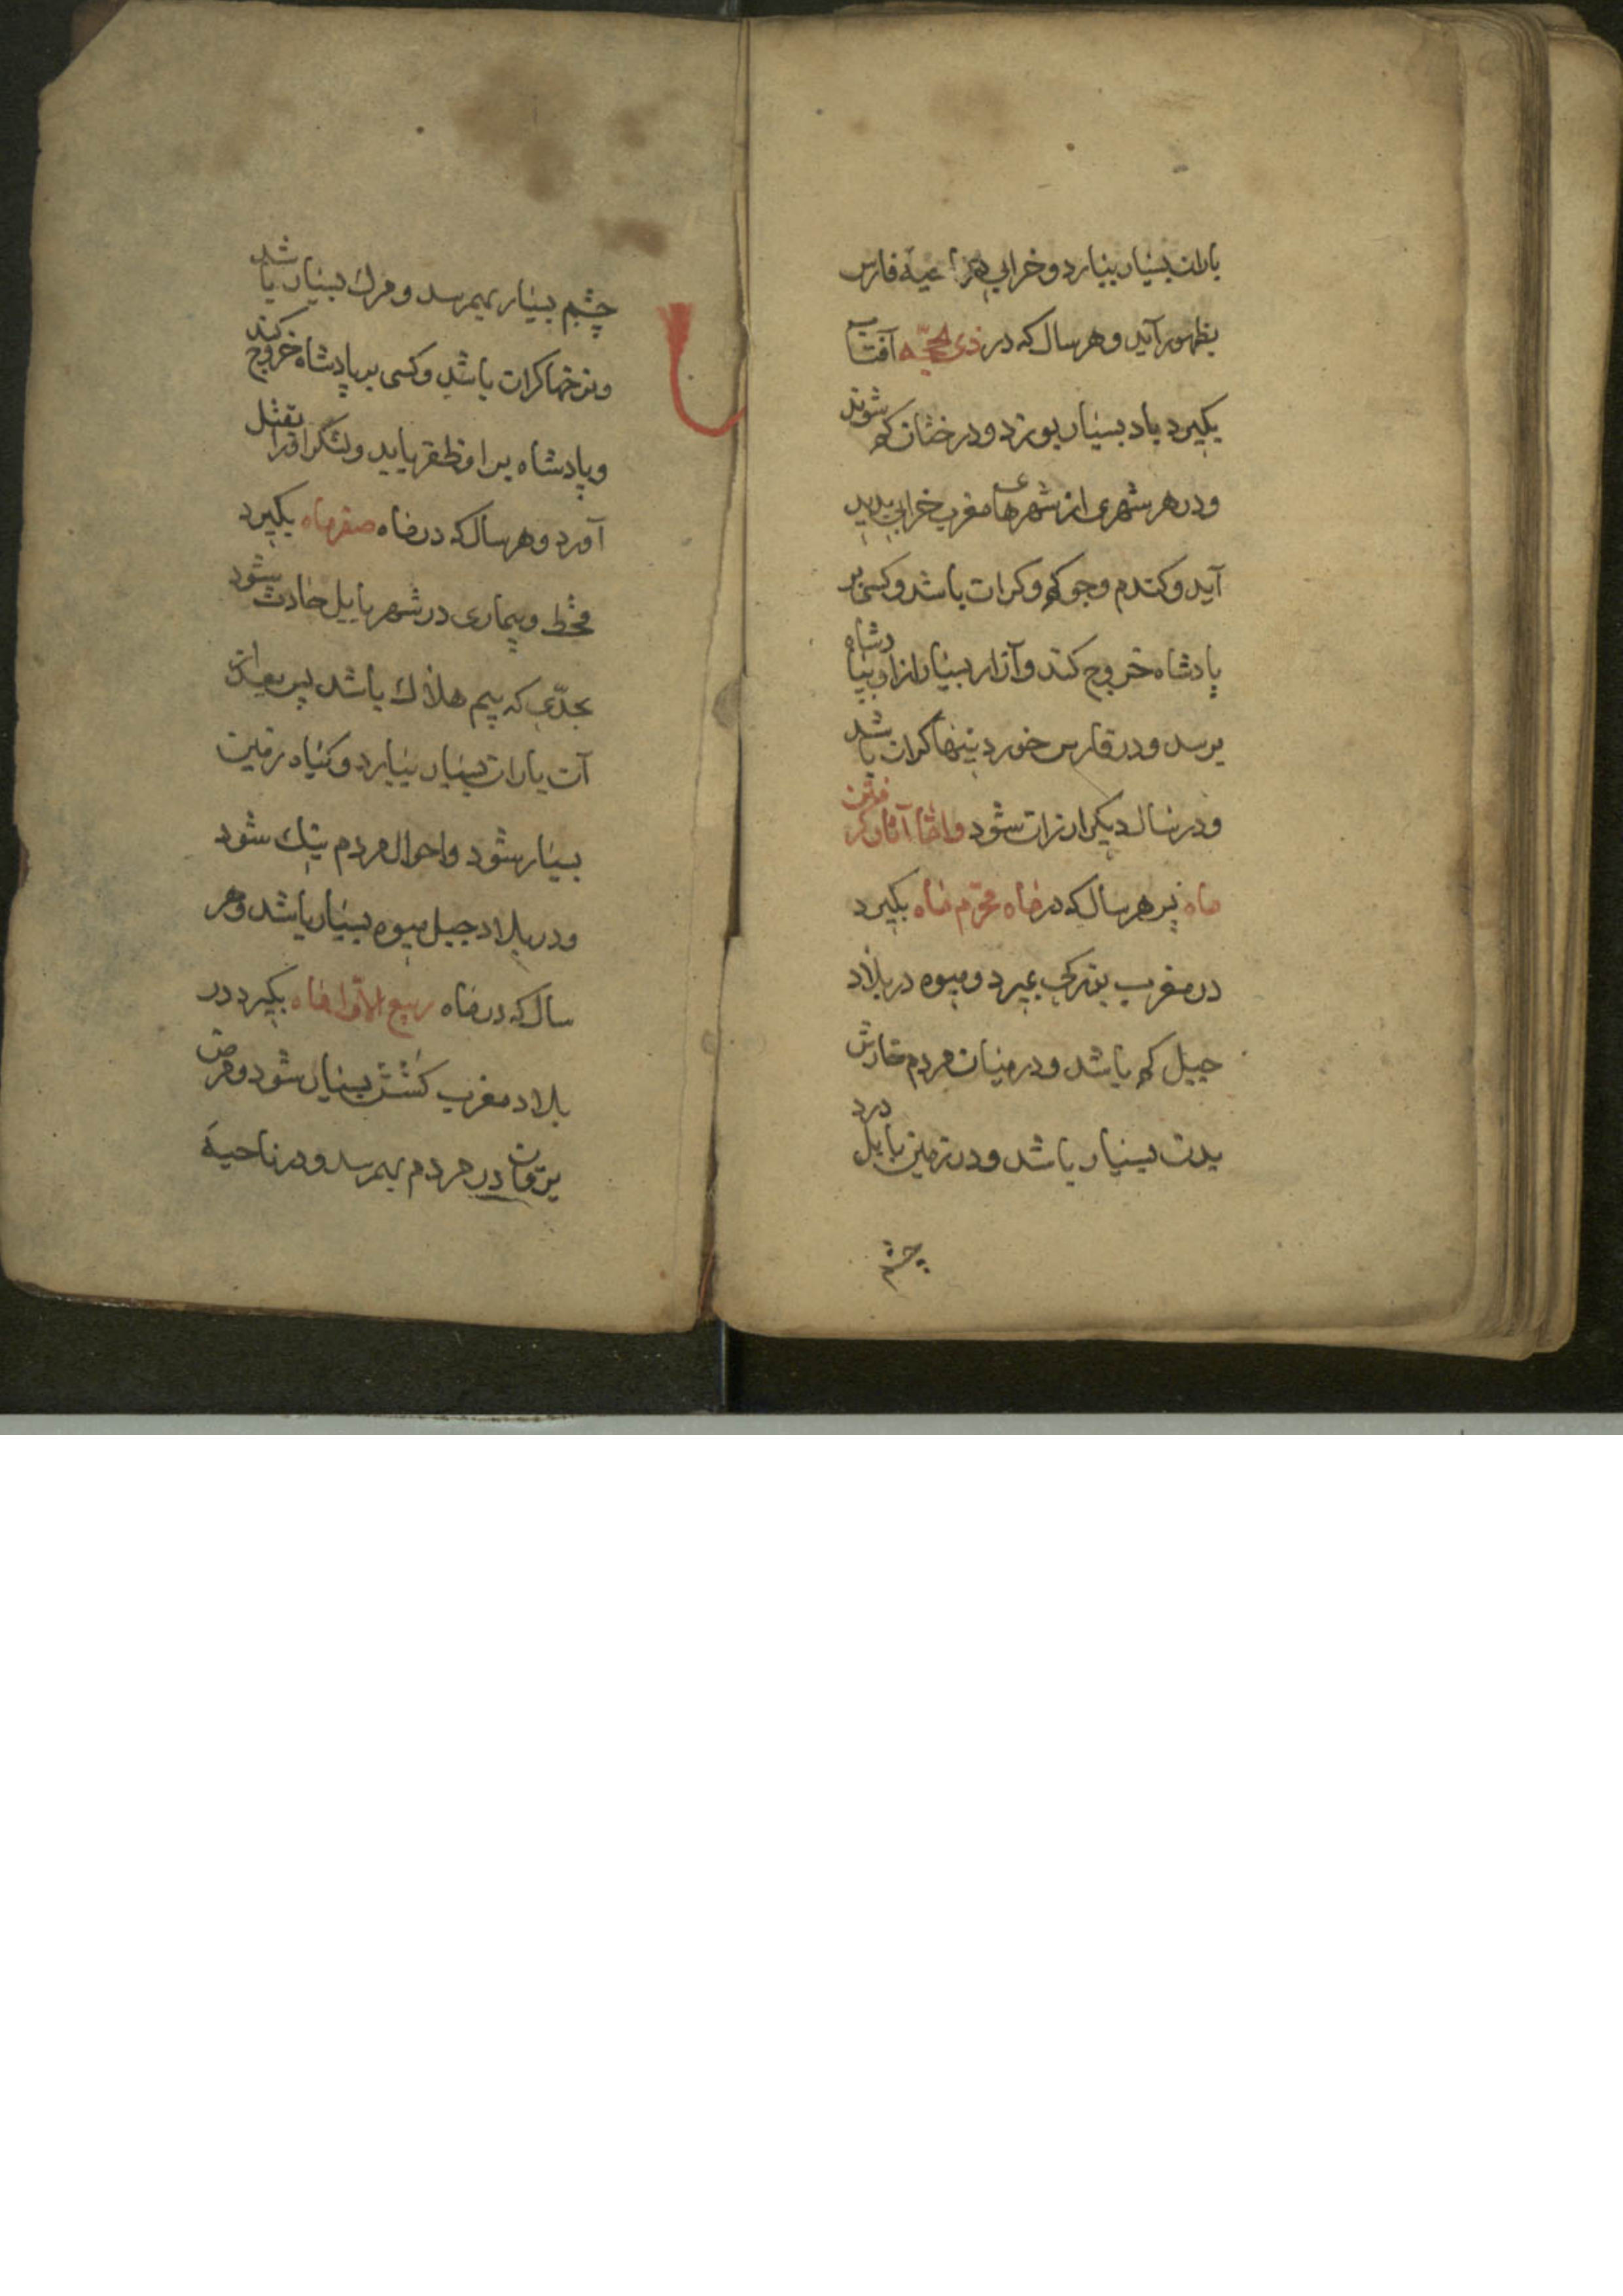 باران بسیار ببارد و خرابی در ناحیه فارس
بظهور آید و هر سال که در ذی حجّه آفتاب
بکیرد باد بسیار بوزد و درختان کم شوند
و در هر شهری از شهرهای مغرب خرابی پدید
آید و کندم و جو کم و کران باشد و کسی بر
پادشاه خروج کند و آزار بسیار از او بپادشاه
برسد و در فارس خوردنیها کران باشد
و در سال دیکر ارزان شود و امّا آثار کرفتن
ماه پس هر سال که در ماه محرّم ماه بکیرد
در مغرب بزرکی بمیرد و میوه در بلاد
جبل کم باشد و در میان مردم خارش
بدن بسیار باشد و در زمین بابل درد
چشم
چشم بسیار بهمرسد و مرك بسیار باشد
و نرخها کران باشد و کسی بر پادشاه خروج کند
و پادشاه بر او ظفر یابد و لشکر او را بقتل
آورد و هر سال که در ماه صفر ماه بکیرد
قحط و بیماری در شهر بابل حادث شود
بحدّی که بیم هلاك باشد پس بعد از
آن باران بسیار ببارد و کیاه زمین
بسیار شود و احوال مردم نیك شود
و در بلاد جبل میوه بسیار باشد و هر
سال که در ماه ربیع الاوّل ماه بکیرد در
بلاد مغرب کشش بسیار شود و مرض
یرقان در مردم بهمرسد و در ناحیهٔ